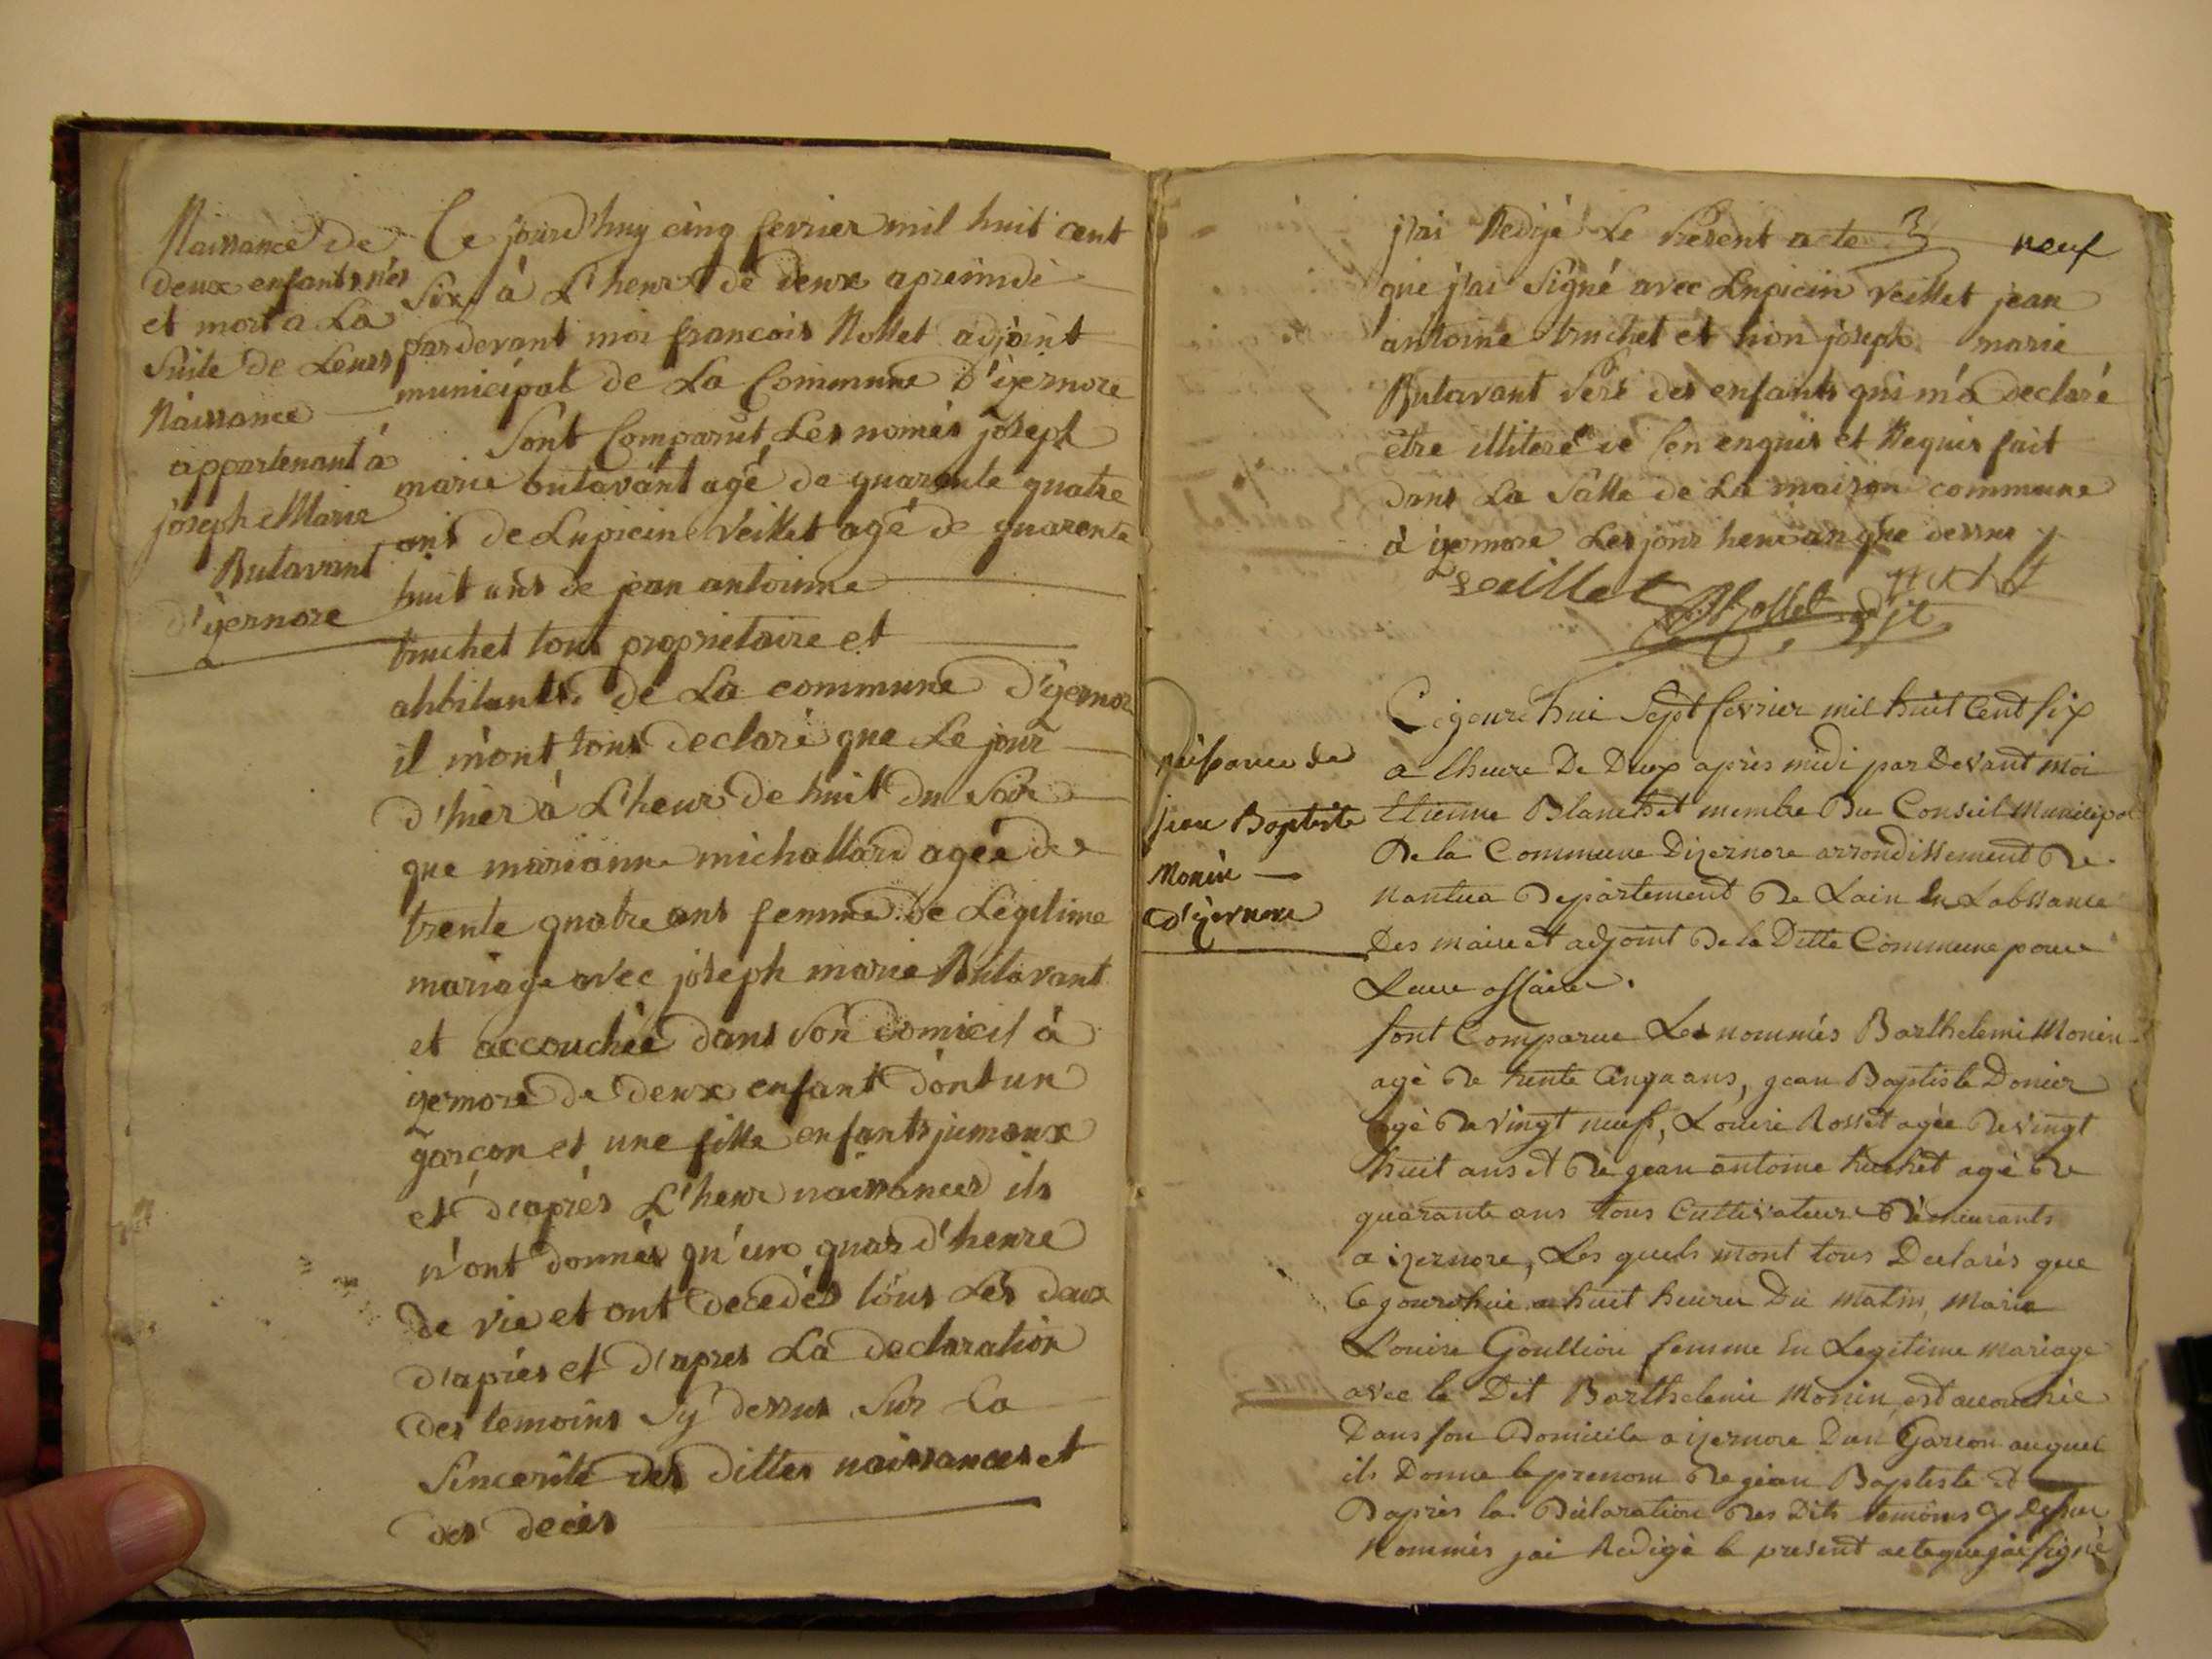 Naissance de
deux enfants nés
et mort a La
suite de Leurs
Naissance
appartenant á
joseph Marie
Butavant
d'ijernore
Ce jourd'huy cinq fevrier mil huit cent
Six à L'heure de deux apreimdi
pardevant moi francois Nollet adjoint
municipal de La Commune D'ijernore
Sont Comparut Les només joseph
marie butavant agé de quarente quatre
ans de Lupicin Veillet agé de quarente
huit ans de jean antoinne
truchet tout proprietaire et
ahbitants de La commune D'ijernore
il m'ont tous declaré que Le jour
d'hier à L'heur de huit du Soir
que marianne michallard ageé de
trente quatre ans femme de Légitime
mariage avec joseph marie Butavant
et accouchée dans son domicil à
ijernore de deux enfant dont un
garcon et une fille enfants jumaux
et d'aprés L'heur naissances ils
n'ont donnés qu'un quar d'heure
de vie et ont decedés tous Les deux
d'aprés et d'apres La declaration
des temoins sy dessus sur La
Sincerité des dittes naissances et
des decés
j'ai Redigé Le present acte neuf
que j'ai Signé avec Lupicin Veillet jean
antoine truchet et non joseph marie
Butavant Pére des enfants qui m'a declaré
étre illiteré de s'en enquis et Requis fait
dans La Salle de La maison commune
à ijernore Les jour heur an que dessus
veillet Nollet adjt truchet
Naissance de
jean Baptiste
Monin
d'ijernore
Cejourdhui Sept fevrier mil huit Cent six
a lheure De Deux après midi par devant moi
Etienne Blanchet membre Du Conseil Municipal
De la Commune Dizernore arrondissement De
Nantua Departement De Lain en Labssance
Des maire et adjoint De la Ditte Commune pour
Leur affaire.
sont Comparue Les nommés Barthelemi Monin
agé De trente Cinq ans, jean Baptiste Donier
agé De vingt neuf, Louise Rosset agée De vingt
huit ans et De jean antoine truchet agé De
quarante ans tous Cultivateurs Demeurants
a izernore, Les quels mont tous Declarés que
Cejourdhui a huit heures Du matin, Marie
Louise Goullion femme En Legitime mariage
avec le Dit Barthelemi Monin, est accouchée
Dans son Domicile a izernore Dun Garcon auquel
ils Donne le prenom De jean Baptiste et
Dapres la Déclaration Des Dits temoins cy dessus
Nommés jai Redigé le present acte que jai signé